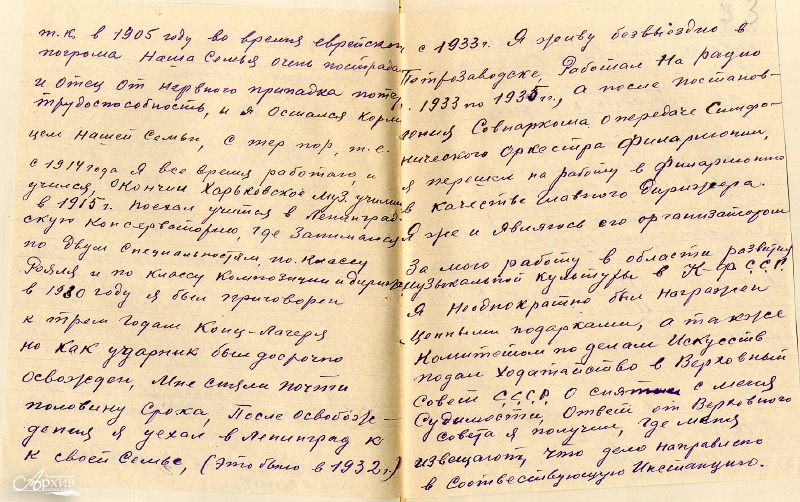 т.к. в 1905 году во время еврейског
погрома Наша Семья очень пострада
и отец от нервного припадка поте
трудоспособность, и я остался Корм
цем нашей Семьи, с тер пор, т.е.
с 1914 года Я всё время работаю, и
учился, Окончил Харьковское Муз. училищ
в 1915 г. поехал учится в Ленинград-
скую Консерваторию, где Занимался
по Двум специальностям, по классу
Рояля и по классу Композиции и дириж
в 1930 году я был приговорен
к трем годам Конц-Лагеря
но как ударник был досрочно
освожден, Мне сняли почти
половину срока, После освобож-
дения я уехал в Ленинград к
к своей Семье, (это было в 1932 г.)
с 1933 г. Я живу безвыездно в
Петрозаводске, Работал на радио
1933 по 1935 гг., а после постанов-
ления Совнаркома о передаче Симфо-
нического Оркестра филармонии,
я перешел на работу в филармонию
в качестве главного Дирижера.
Я же и являюсь его организатором
За мою работу в области развития
музыкальной культуры в К-Ф С.С.Р.
Я неоднократно был награжден
ценными подарками, а также
Комитетом по делам Искусств
подал Ходатайство в Верховный
Совет С.С.С.Р. О снятии с меня
Судимости, Ответ от Верховного
Совета я получил, где меня
извещают, что дело направлено
в Соотвествующую Инстанцию.
Архив